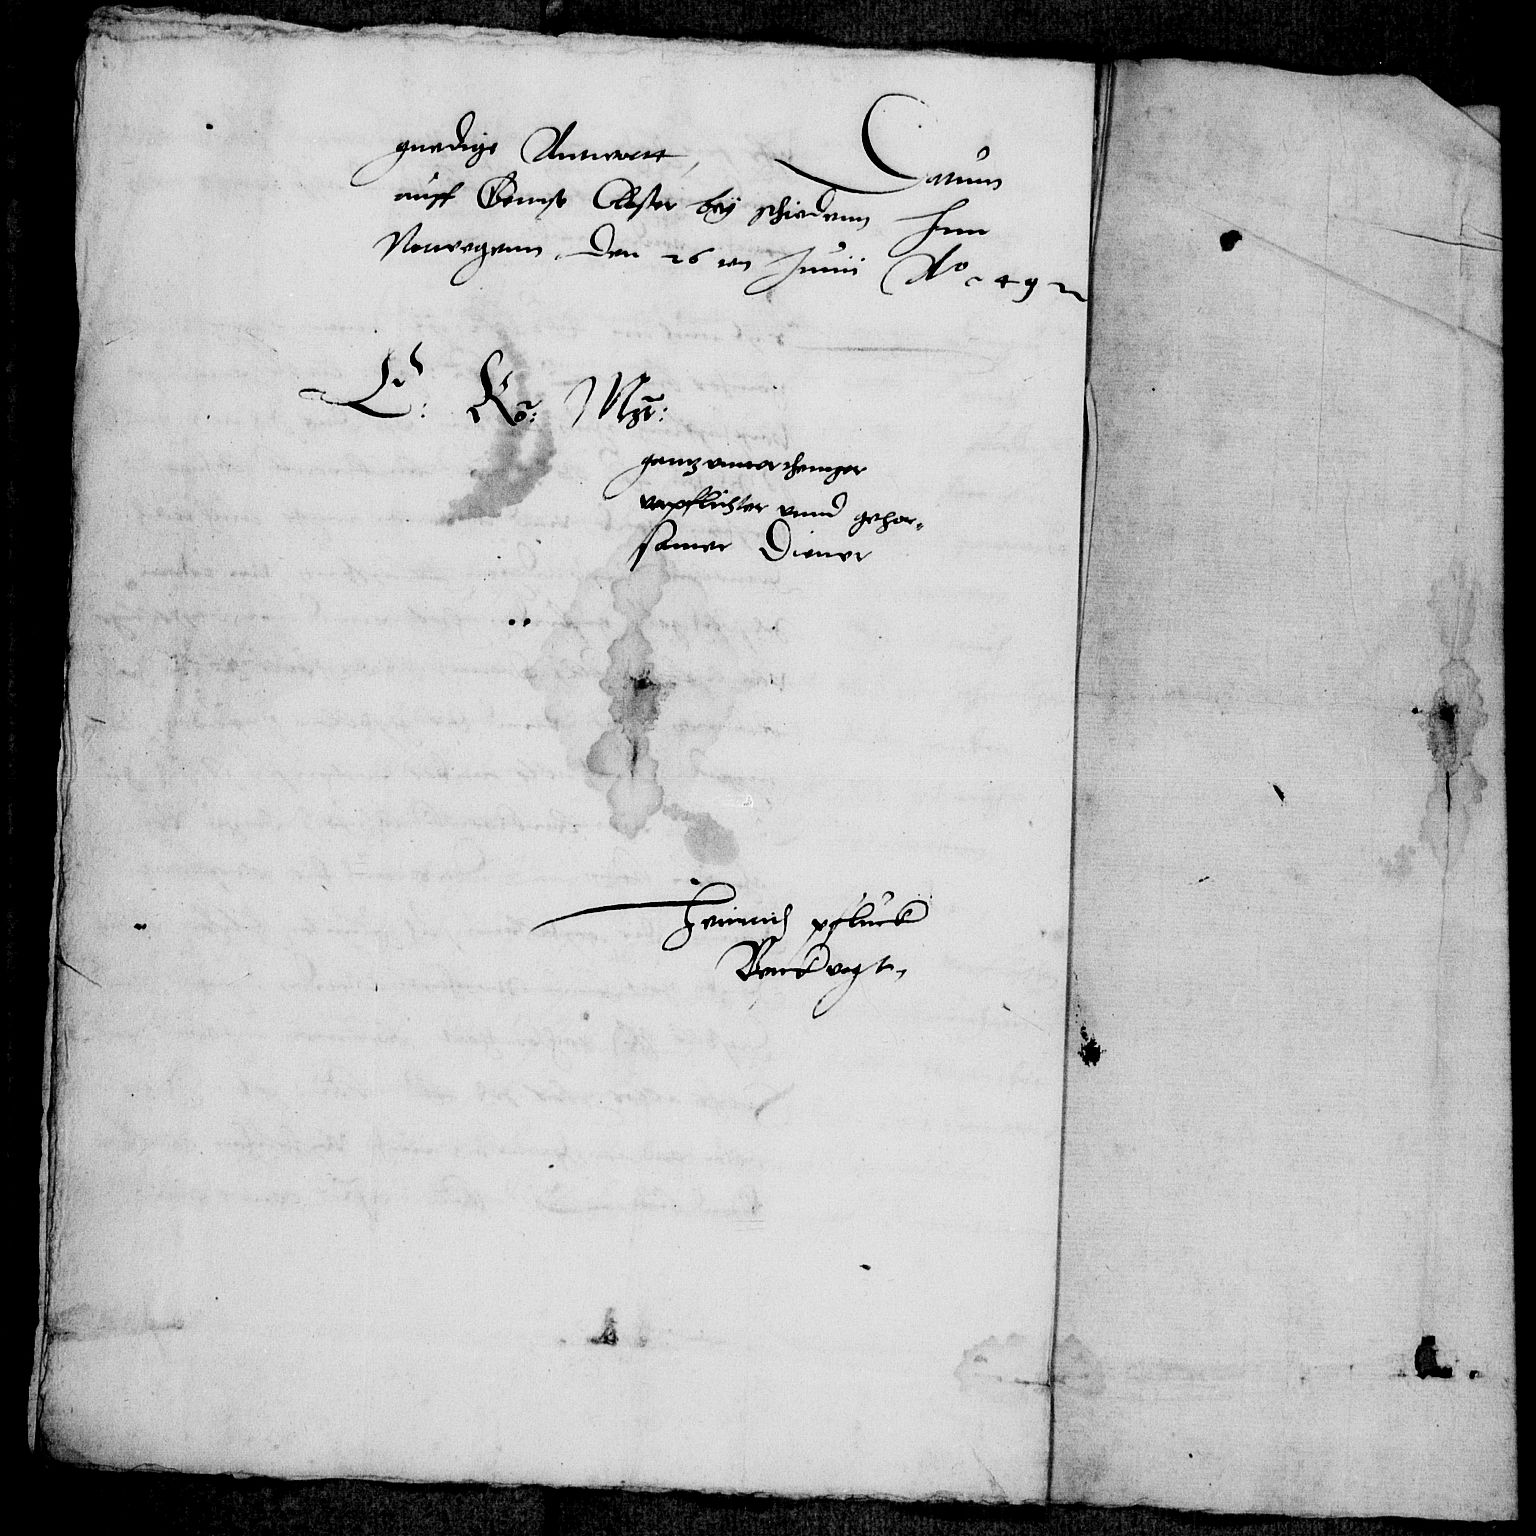 gnedige Antwortt, Datum
auff Gemse Closter bey schiedenn Inn
Norwegenn, den 26 ten Junii Aº 1 4 9 2
E: Kö: Mgt:
gantz untertheniger
verpflichter unnd gehor-
samer Diener
Heinrich pflück
Berckvogt,